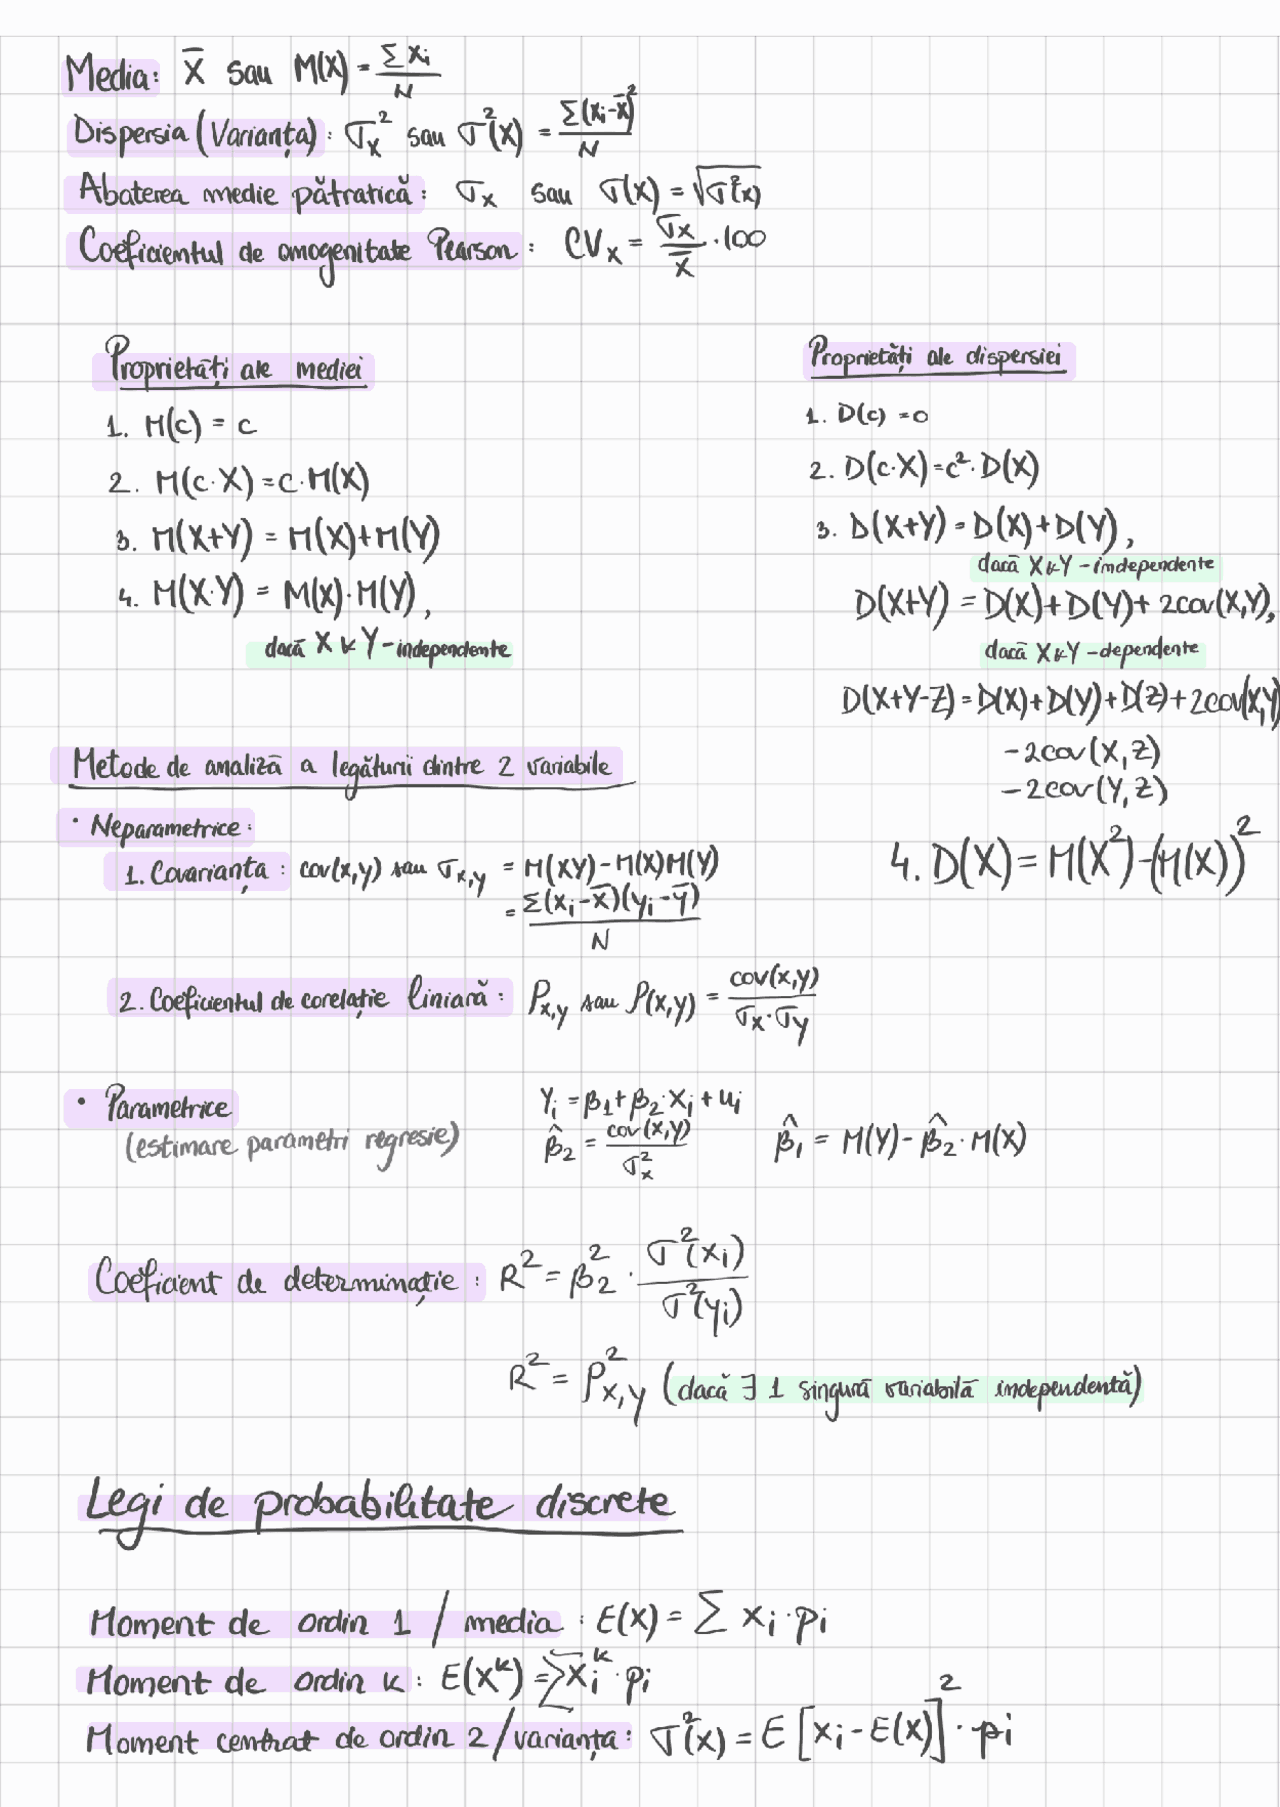 Media: X̄ sau M(X) = Σxi / N
Dispersia (Varianța): σx² sau σ²(X) = Σ(xi-x̄)² / N
Abaterea medie pătratică: σx sau σ(X) = √σ²(x)
Coeficientul de omogenitate Pearson: CVx = σx / x̄ · 100
Proprietăți ale mediei
1. M(c) = c
2. M(c·X) = c·M(X)
3. M(X+Y) = M(X)+M(Y)
4. M(X·Y) = M(X)·M(Y),
dacă X și Y - independente
Proprietăți ale dispersiei
1. D(c) = 0
2. D(c·X) = c²·D(X)
3. D(X+Y) = D(X)+D(Y),
dacă X și Y - independente
D(X+Y) = D(X)+D(Y)+ 2cov(X,Y),
dacă X și Y - dependente
D(X+Y-Z) = D(X)+D(Y)+D(Z)+2cov(X,Y)
-2cov(X,Z)
-2cov(Y,Z)
4. D(X) = M(X²)-(M(X))²
Metode de analiză a legăturii dintre 2 variabile
• Neparametrice:
1. Covarianța: cov(x,y) sau σx,y = M(XY) - M(X)M(Y)
= Σ(xi-x̄)(yi-ȳ) / N
2. Coeficientul de corelație liniară: ρx,y sau ρ(x,y) = cov(x,y) / σx·σy
• Parametrice
(estimare parametri regresie)
Yi = β1+β2·Xi+ui
β̂2 = cov(x,y) / σx²
β̂1 = M(Y) - β̂2·M(X)
Coeficient de determinație: R² = β2² · σ²(xi) / σ²(yi)
R² = ρ²x,y (dacă ∃ 1 singură variabilă independentă)
Legi de probabilitate discrete
Moment de ordin 1 / media: E(X) = Σ xi·pi
Moment de ordin k: E(X^k) = Σxi^k·pi
Moment centrat de ordin 2/varianța: σ²(x) = E[xi - E(X)]²·pi